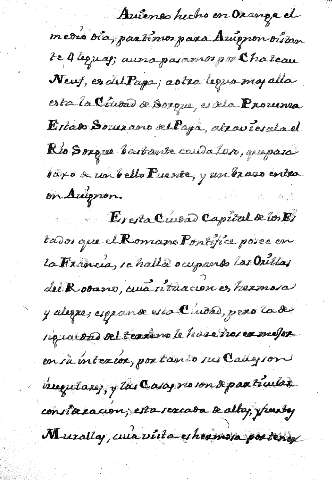 Aviendo hecho en Orange el
medio dia, partimos para Auignon distan
te 4 leguas; a una pasamos por Chateau
Neuf, es del Papa; a otra legua mas alla
esta la Ciudad de Sorgue, es de la Provenza
Estado Soverano del Papa, atraviesala el
Rio Sorgue bastante caudaloso, que pasa
baxo de un bello Puente, y un brazo entra
en Auignon.
Es esta Ciudad Capital de los Es
tados que el Romano Pontifice posee en
la Francia, se halla ocupando las Orillas
del Rodano, cuia situacion es hermosa
y alegre; es grande esta Ciudad, pero la de
sigualdad del terreno le hace no ser mejor
en su interior, por tanto sus Calles son
irregulares, y las Casas no son de particular
consideracion; esta cercada de altos, y fuertes
Murallas, cuia vista es hermosa por tener